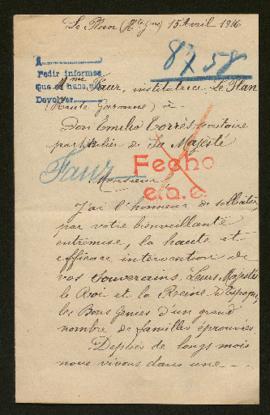 Le Plan (Hte Gne) 15 Avril 1916
A
Pedir informes
Que se haga
Devolver
8758
Mme Faur, institutrice Le Plan
(Haute Garonne) à
Don Emilio Torrès secrétaire
particulier de Sa Majesté
Faur
Fecho
Monsieur
J'ai l'honneur de solliciter
par votre bienveillante
entremise, la haute et
efficace intervention de
vos Souverains, Leurs Majestés
le Roi et la Reine d'Espagne,
les Bons Génies d'un grand
nombre de familles éprouvées
Depuis de longs mois
nous vivons dans une